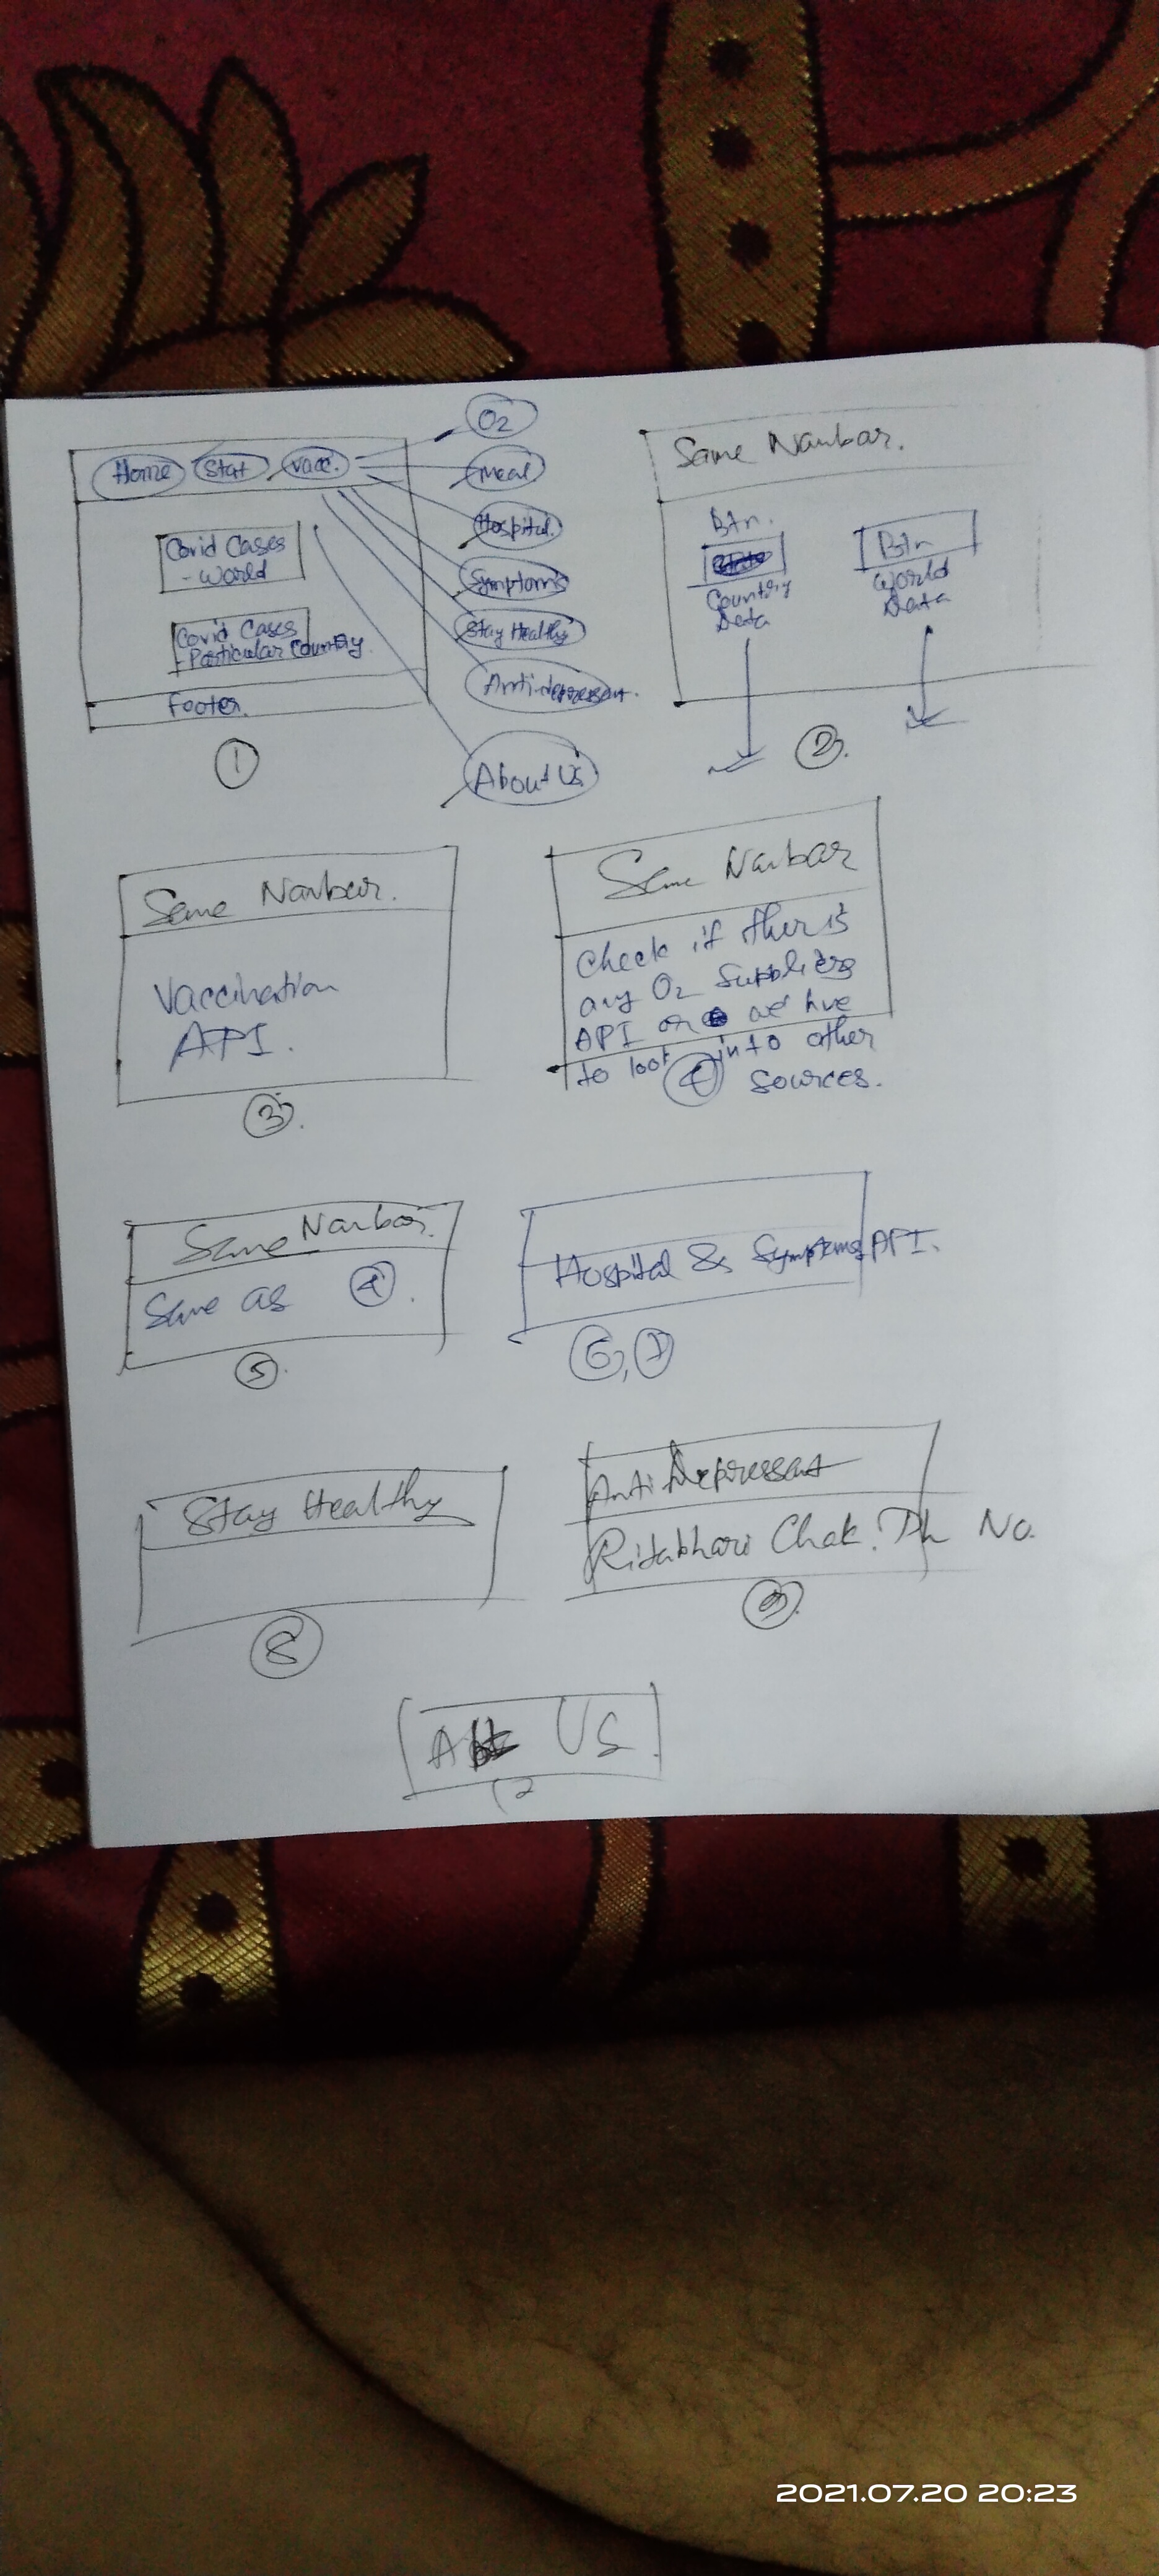 Home Stat Vacc.
O2
Meal
Hospital.
Symptoms
Stay Healthy
Anti-depressant.
About Us
Covid Cases
- World
Covid Cases
- Particular Country.
Footer.
1
Same Navbar.
Btn.
Country
Data
Btn
World
Data
2.
Same Navbar.
Vaccination
API.
3.
Same Navbar
Check if ther is
any O2 Suppliers
API or we hve
to look into other
sources.
4
Same Navbar.
Same as 4.
5.
Hospital & Symptoms API.
6, 7
Stay Healthy
8
Anti Depressant
Ritabhari Chak. Ph No.
9.
US.
2021.07.20 20:23